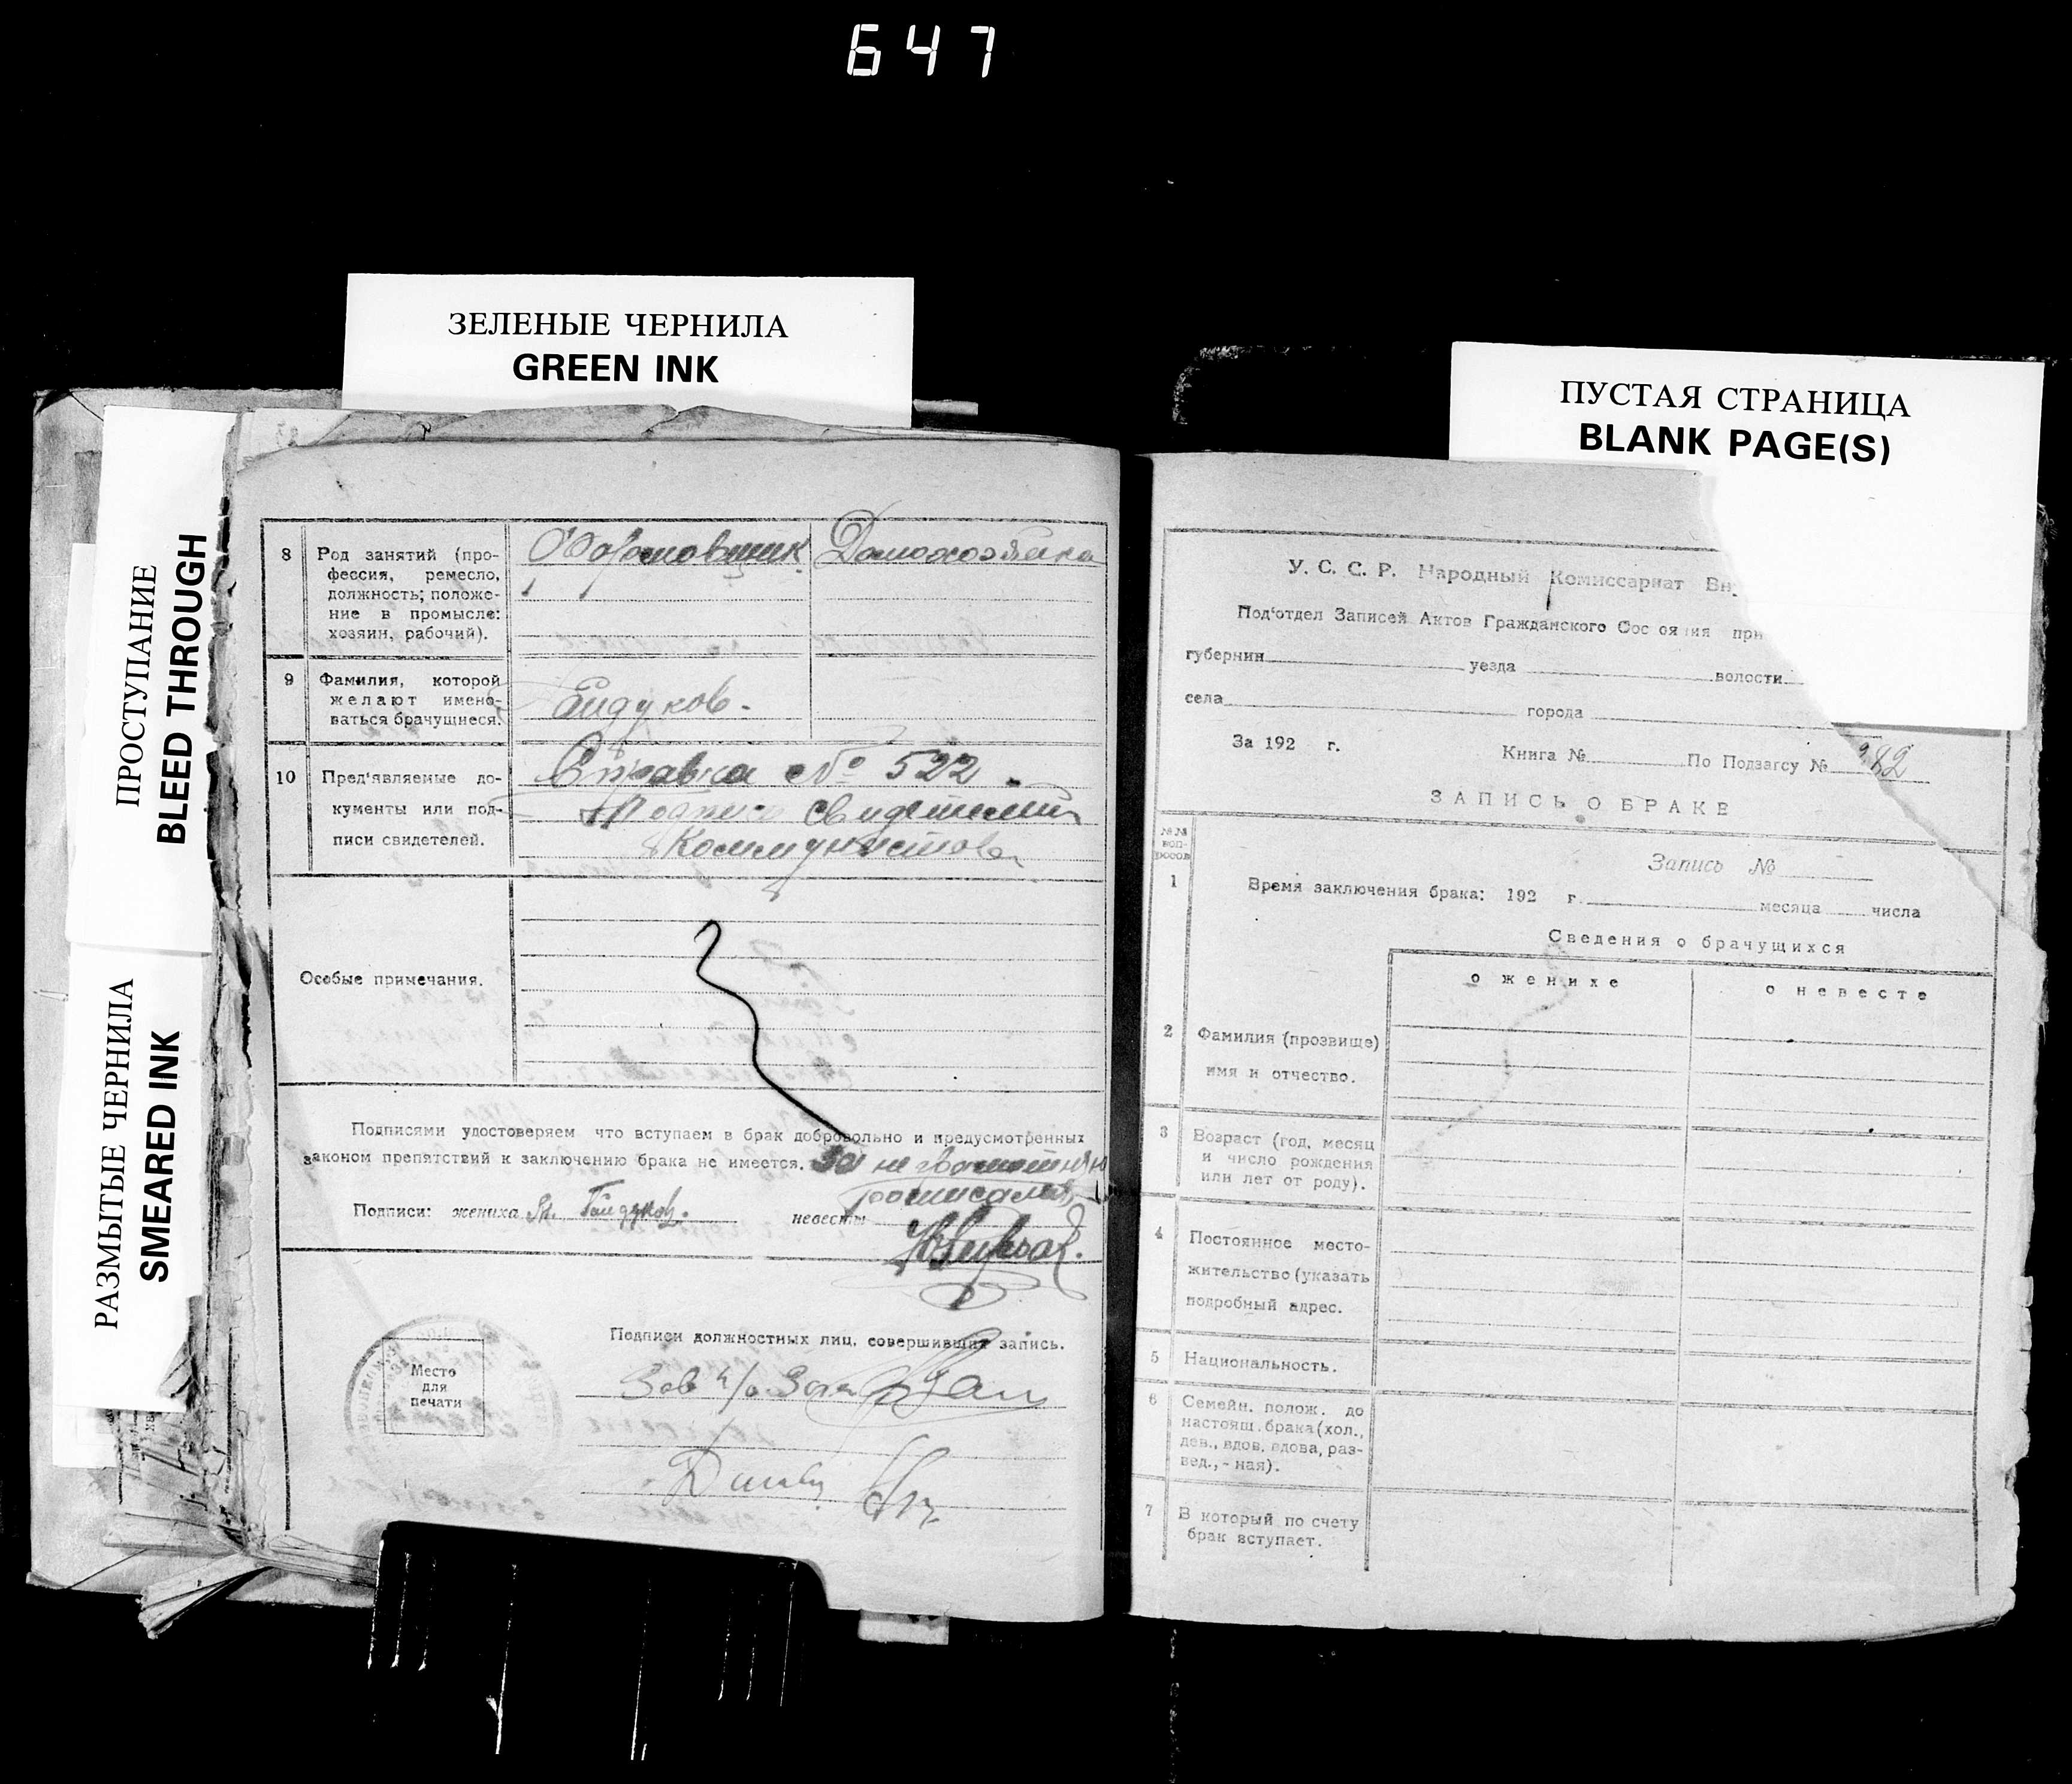 647
ЗЕЛЕНЫЕ ЧЕРНИЛА
GREEN INK
ПУСТАЯ СТРАНИЦА
BLANK PAGE(S)
ПРОСТУПАНИЕ
BLEED THROUGH
РАЗМЫТЫЕ ЧЕРНИЛА
SMEARED INK
8 Род занятий (про-
фессия, ремесло,
должность; положе-
ние в промысле:
хозяин, рабочий).
Домохозяека
9 Фамилия, которой
желают имено-
ваться брачущиеся.
Гайдуков.
10 Пред'являемые до-
кументы или под-
писи свидетелей.
Справка № 522
Подписи свидетелей
Коммунистова
Особые примечания.
Подписями удостоверяем что вступаем в брак добровольно и предусмотренных
законом препятствий к заключению брака не имеется. За неграмотную
росписался
Подписи: жениха Гайдуков. невесты
Подписи должностных лиц, совершивших запись.
Место
для
печати
Зав
У. С. С. Р. Народный Комиссариат Вн
Под'отдел Записей Актов Гражданского Сос ояния при
губернии уезда волости
села города
За 192 г. Книга № По Подзагсу № 982
ЗАПИСЬ О БРАКЕ
№№
воп-
росов
Запись №
1 Время заключения брака: 192 г. месяца числа
Сведения о брачущихся
о женихе о невесте
2 Фамилия (прозвище)
имя и отчество.
3 Возраст (год, месяц
и число рождения
или лет от роду).
4 Постоянное место-
жительство (указать
подробный адрес.
5 Национальность.
6 Семейн. полож. до
настоящ. брака (хол.,
дев., вдов, вдова, раз-
вед., - ная).
7 В который по счету
брак вступает.